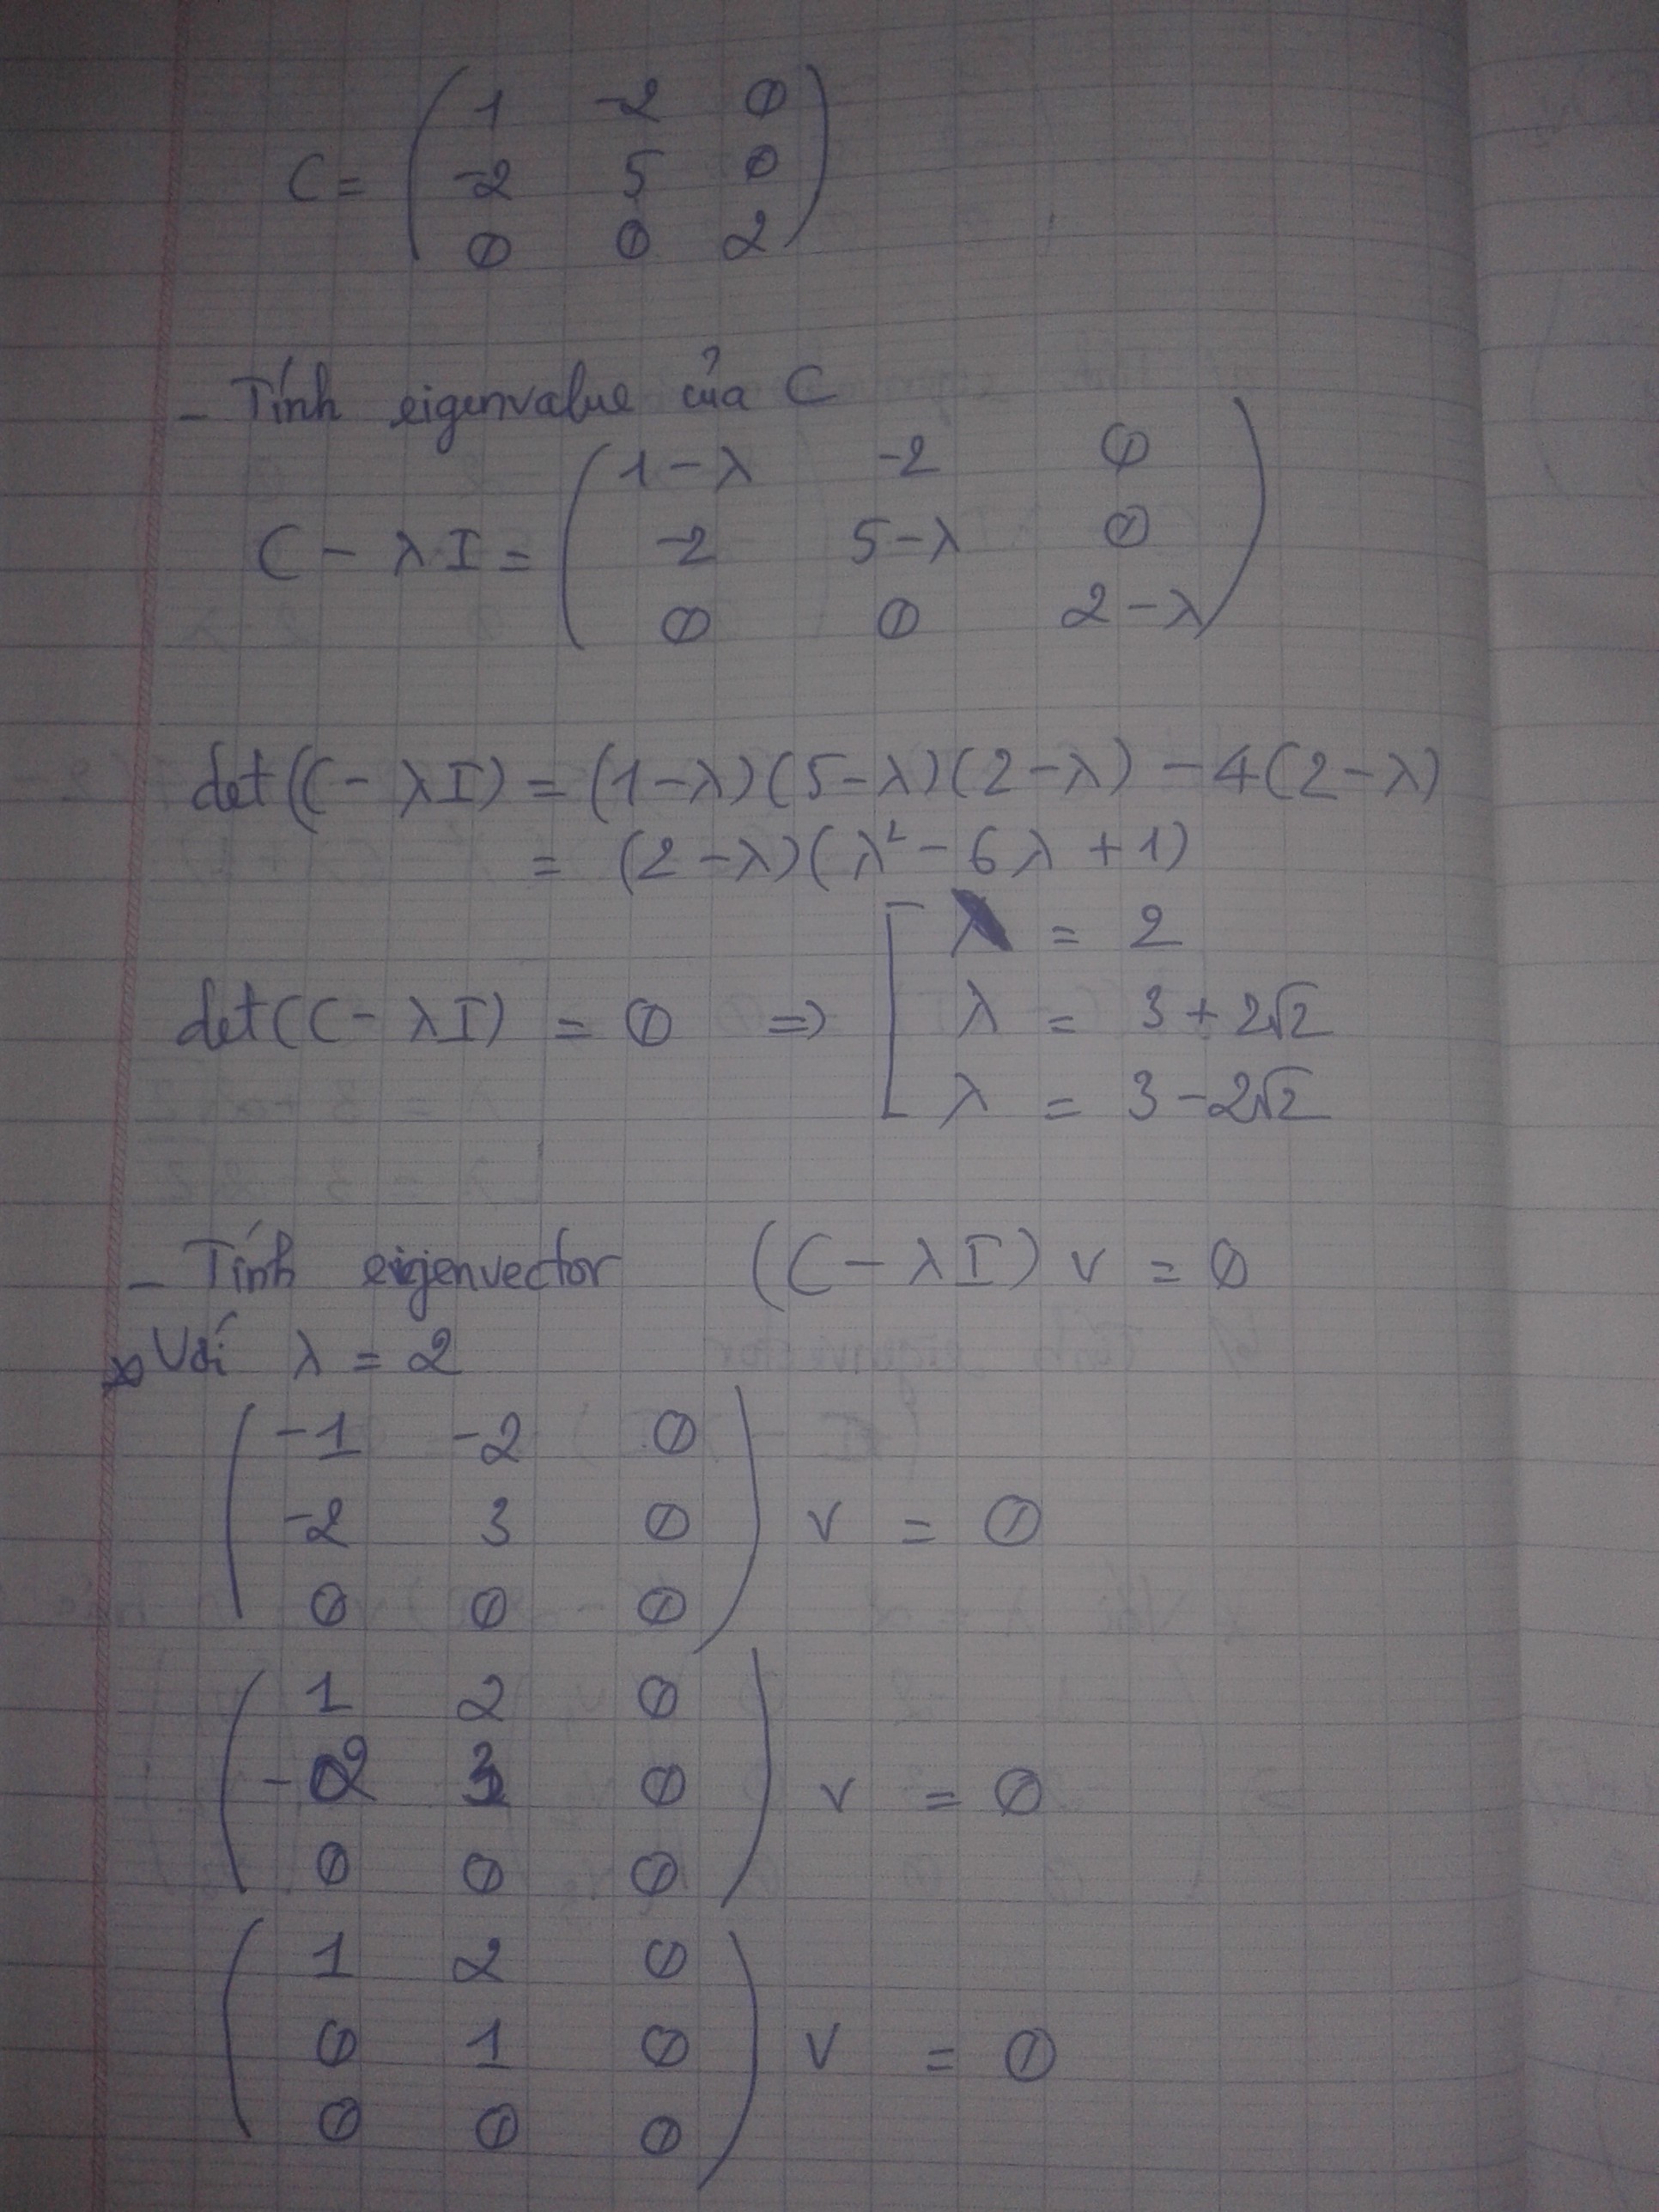 C = ( 1 -2 0
-2 5 0
0 0 2 )
- Tính eigenvalue của C
C - λI = ( 1-λ -2 0
-2 5-λ 0
0 0 2-λ )
det(C - λI) = (1-λ)(5-λ)(2-λ) - 4(2-λ)
= (2-λ)(λ² - 6λ + 1)
det(C - λI) = 0 => [ λ = 2
λ = 3 + 2√2
λ = 3 - 2√2
- Tính eigenvector (C - λI) v = 0
* Với λ = 2
( -1 -2 0
-2 3 0
0 0 0 ) v = 0
( 1 2 0
-2 3 0
0 0 0 ) v = 0
( 1 2 0
0 1 0
0 0 0 ) v = 0